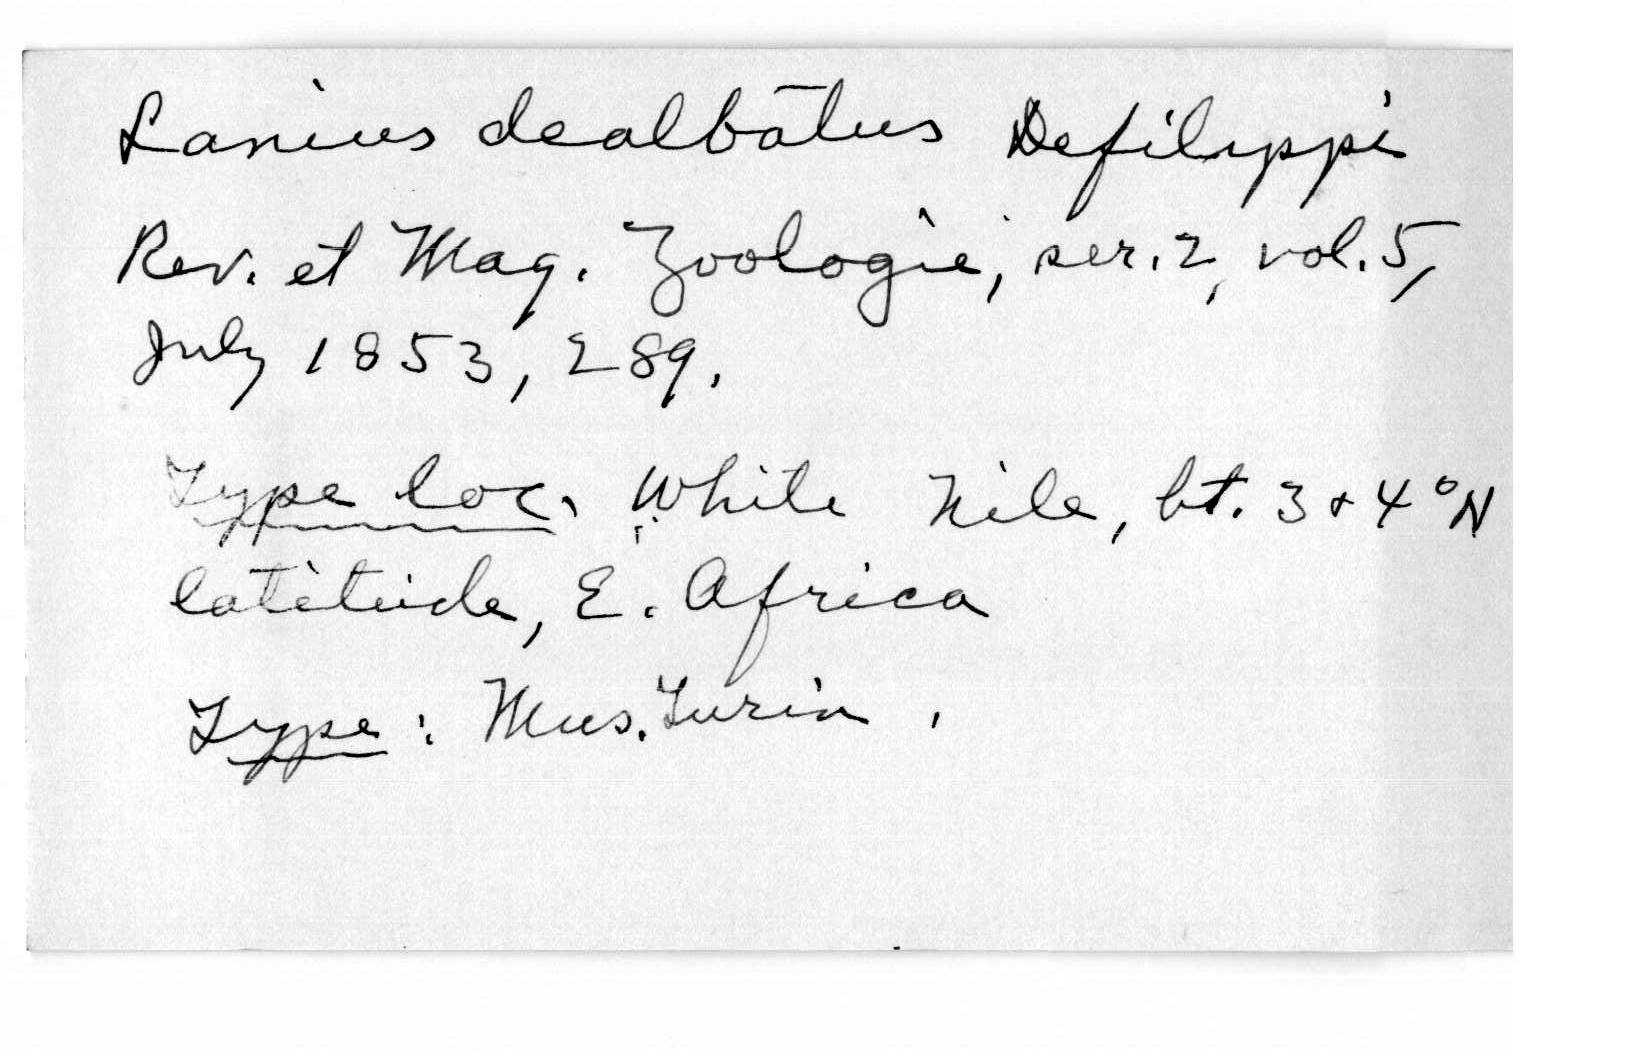 Lanius dealbātus Defilippi
Rev. et Mag. Zoologie, ser. 2, vol. 5,
July 1853, 289.
Type loc. White Nile, bt. 3 & 4° N
latitude, E. Africa
Type: Mus. Turin.